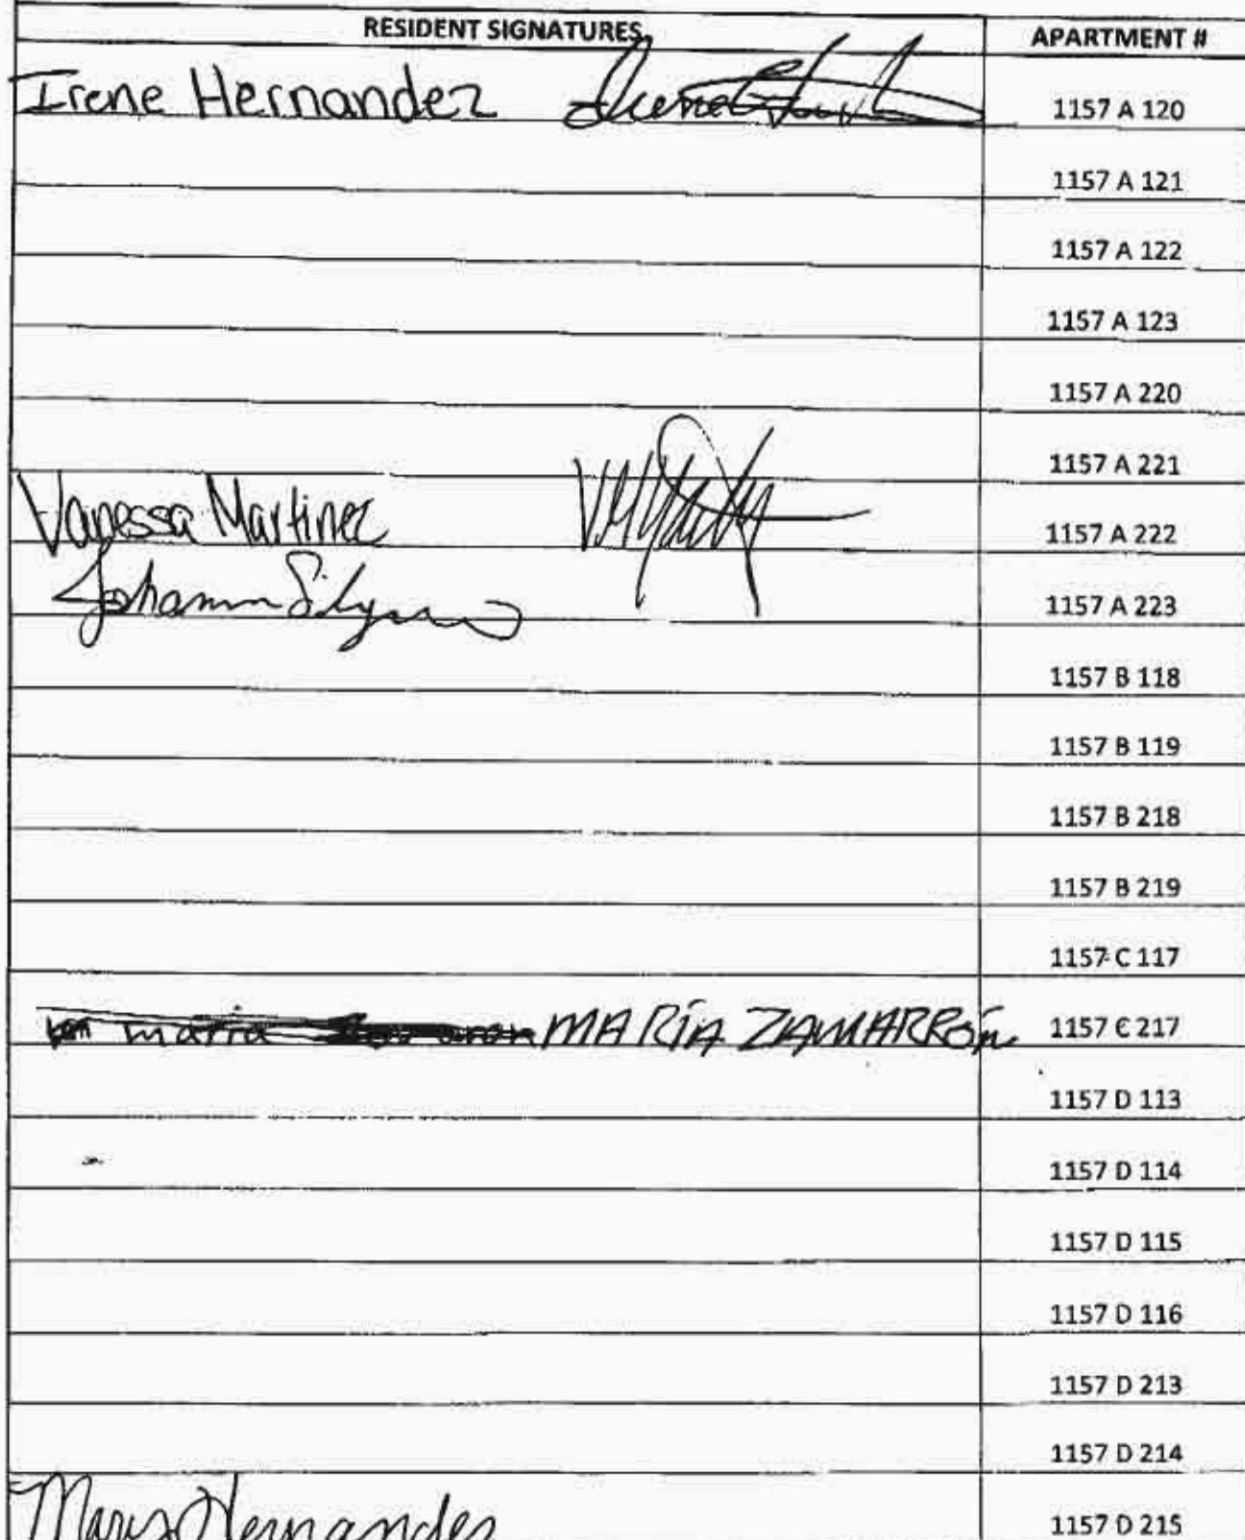 RESIDENT SIGNATURES APARTMENT #
Irene Hernandez 1157 A 120
1157 A 121
1157 A 122
1157 A 123
1157 A 220
1157 A 221
Vanessa Martinez 1157 A 222
1157 A 223
1157 B 118
1157 B 119
1157 B 218
1157 B 219
1157 C 117
maria MARÍA ZAMARRÓn 1157 C 217
1157 D 113
1157 D 114
1157 D 115
1157 D 116
1157 D 213
1157 D 214
Mary Hernandez 1157 D 215